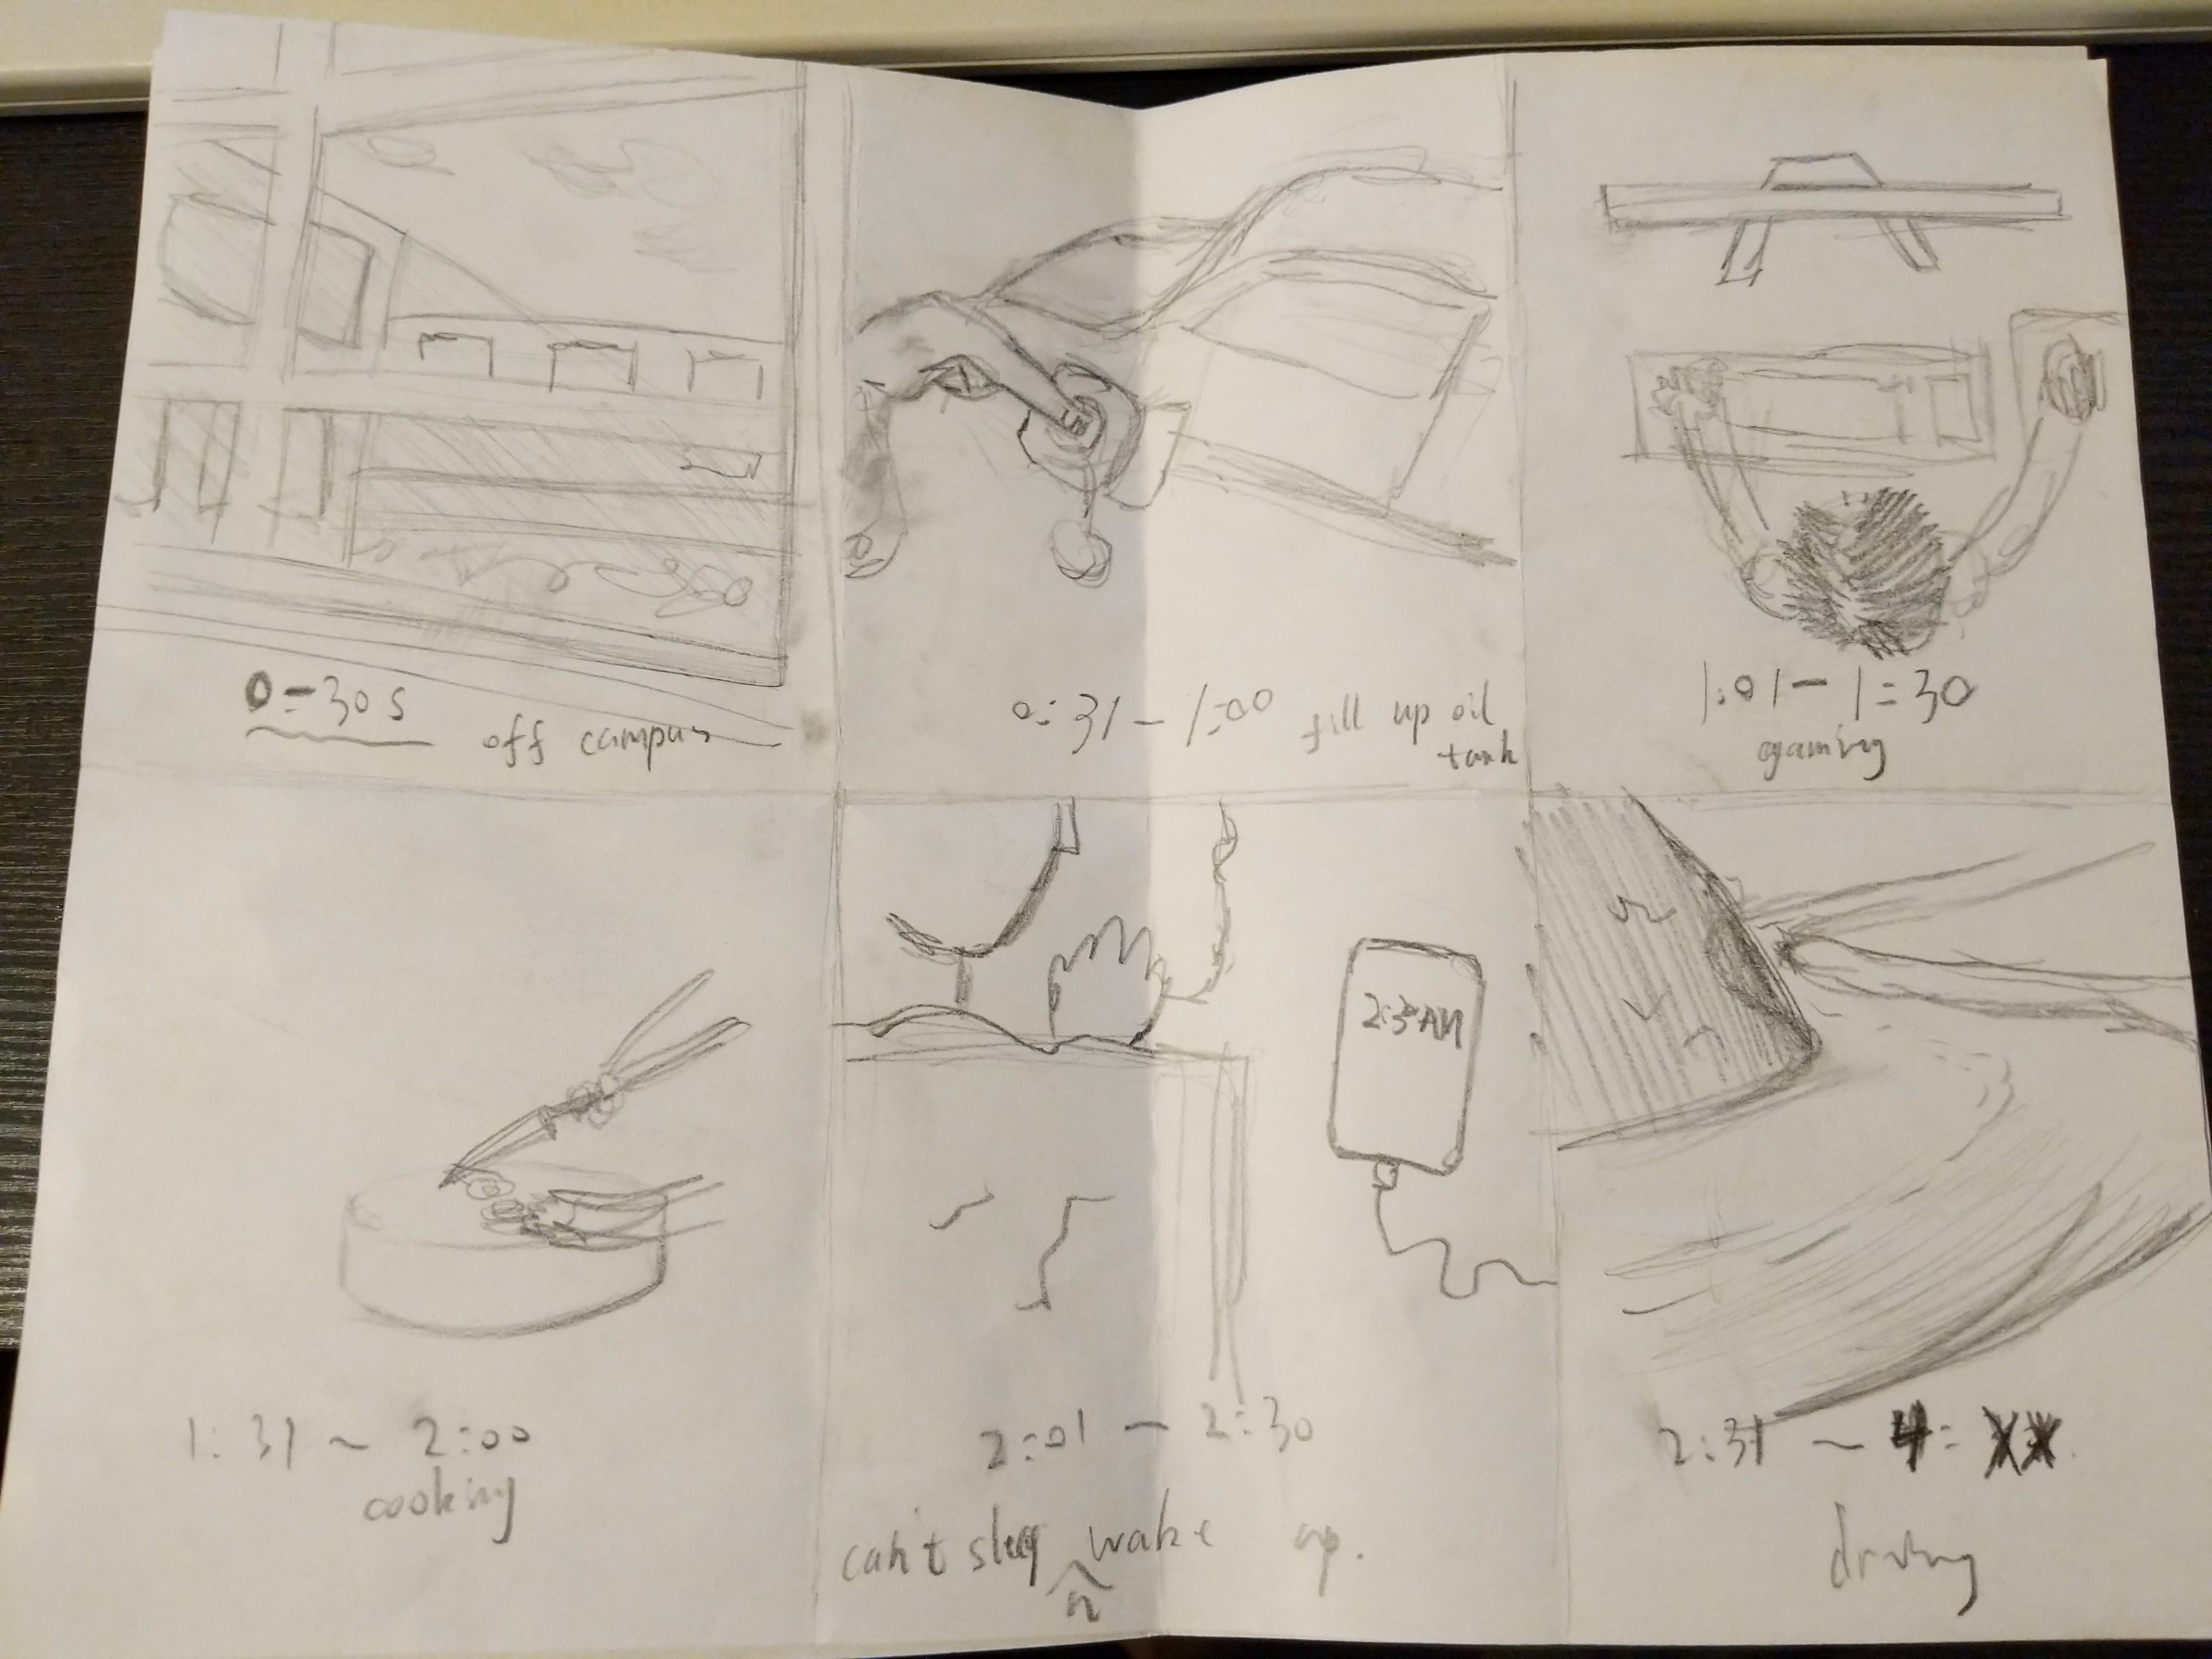 0-30s
off campus
0:31 - 1:00 fill up oil
tank
1:01 - 1:30
gaming
2:3 AM
1:31 ~ 2:00
cooking
2:01 - 2:30
can't sleep wake up.
2:31 ~ 4: XX
driving